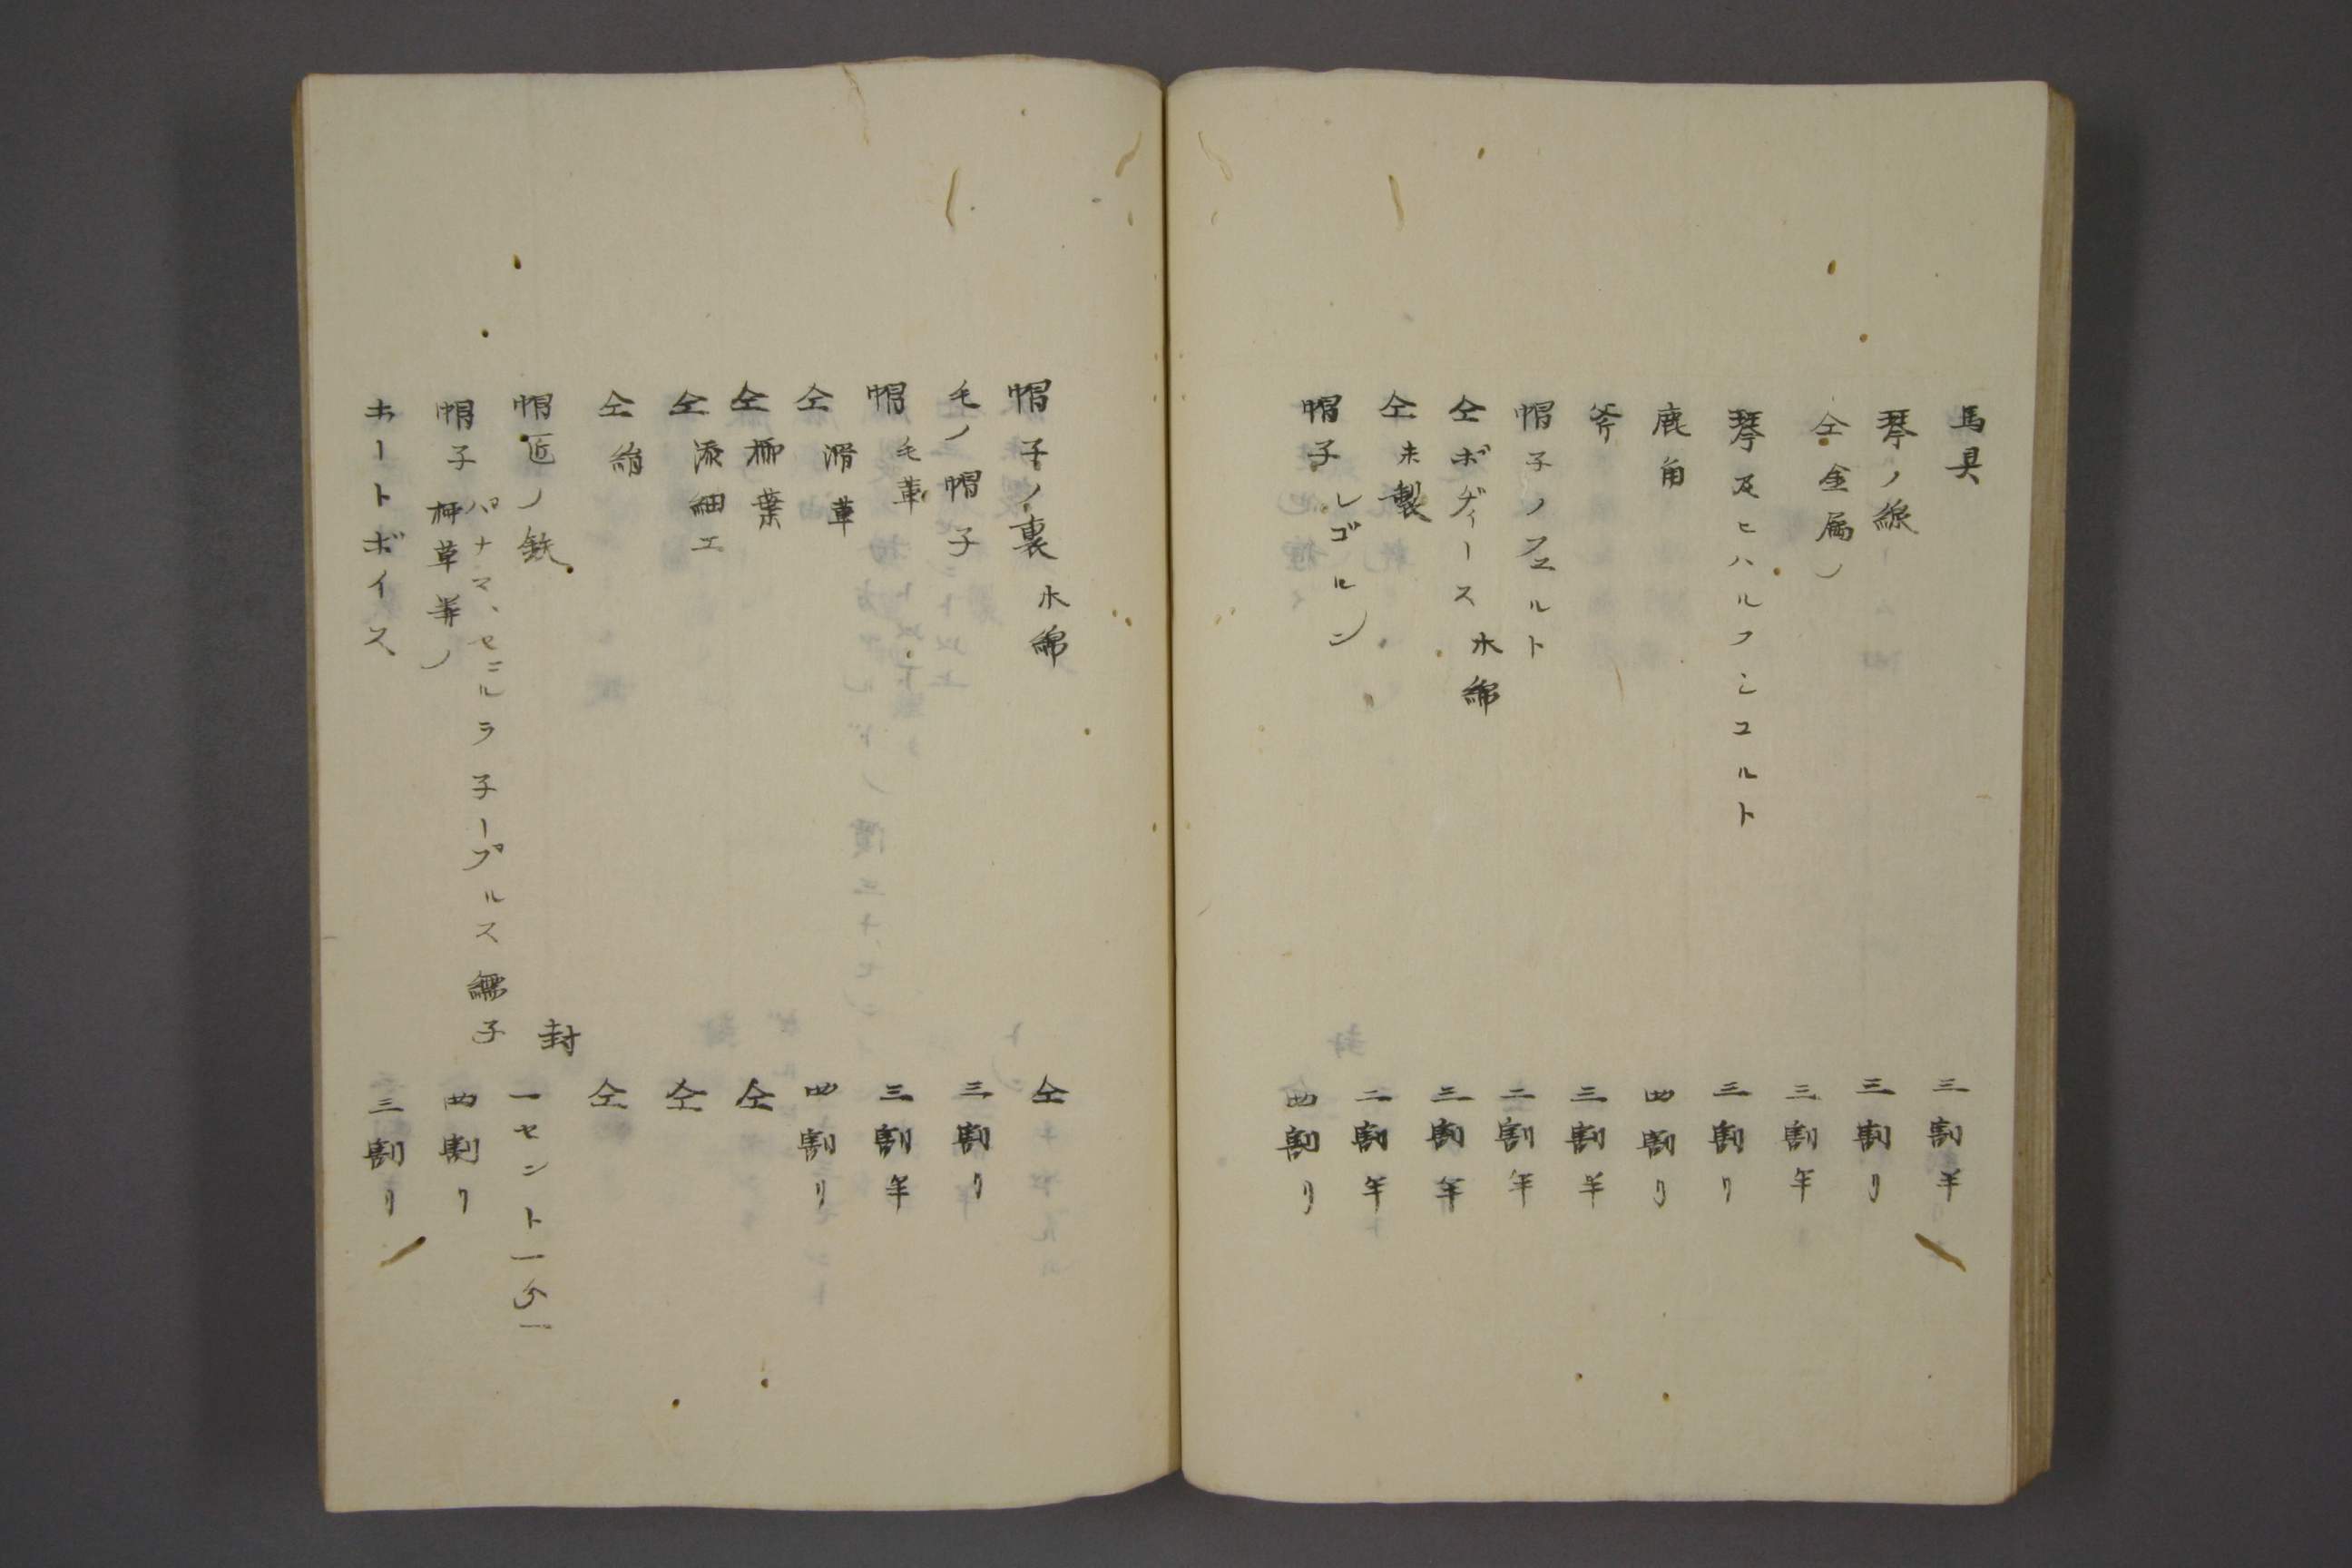 馬具 三割半
琴ノ線 三割リ
仝 金属ノ 三割半
琴及ヒハルフシコルト 三割リ
鹿角 四割リ
斧 三割半
帽子ノフエルト 二割半
仝ボヂィース 木綿 三割半
仝 未製 二割半
帽子 レゴルン 四割リ
帽子ノ裏 木綿 仝
毛ノ帽子 三割リ
帽 毛革 三割半
仝 滑革 四割リ
仝 椰葉 仝
仝 添細工 仝
仝 絹 仝
帽匠ノ鉄 封 一セント一分一
帽子 パナマ、セニルラ子ープルス繻子 草等ノ 四割リ
ホートボイス 三割リ